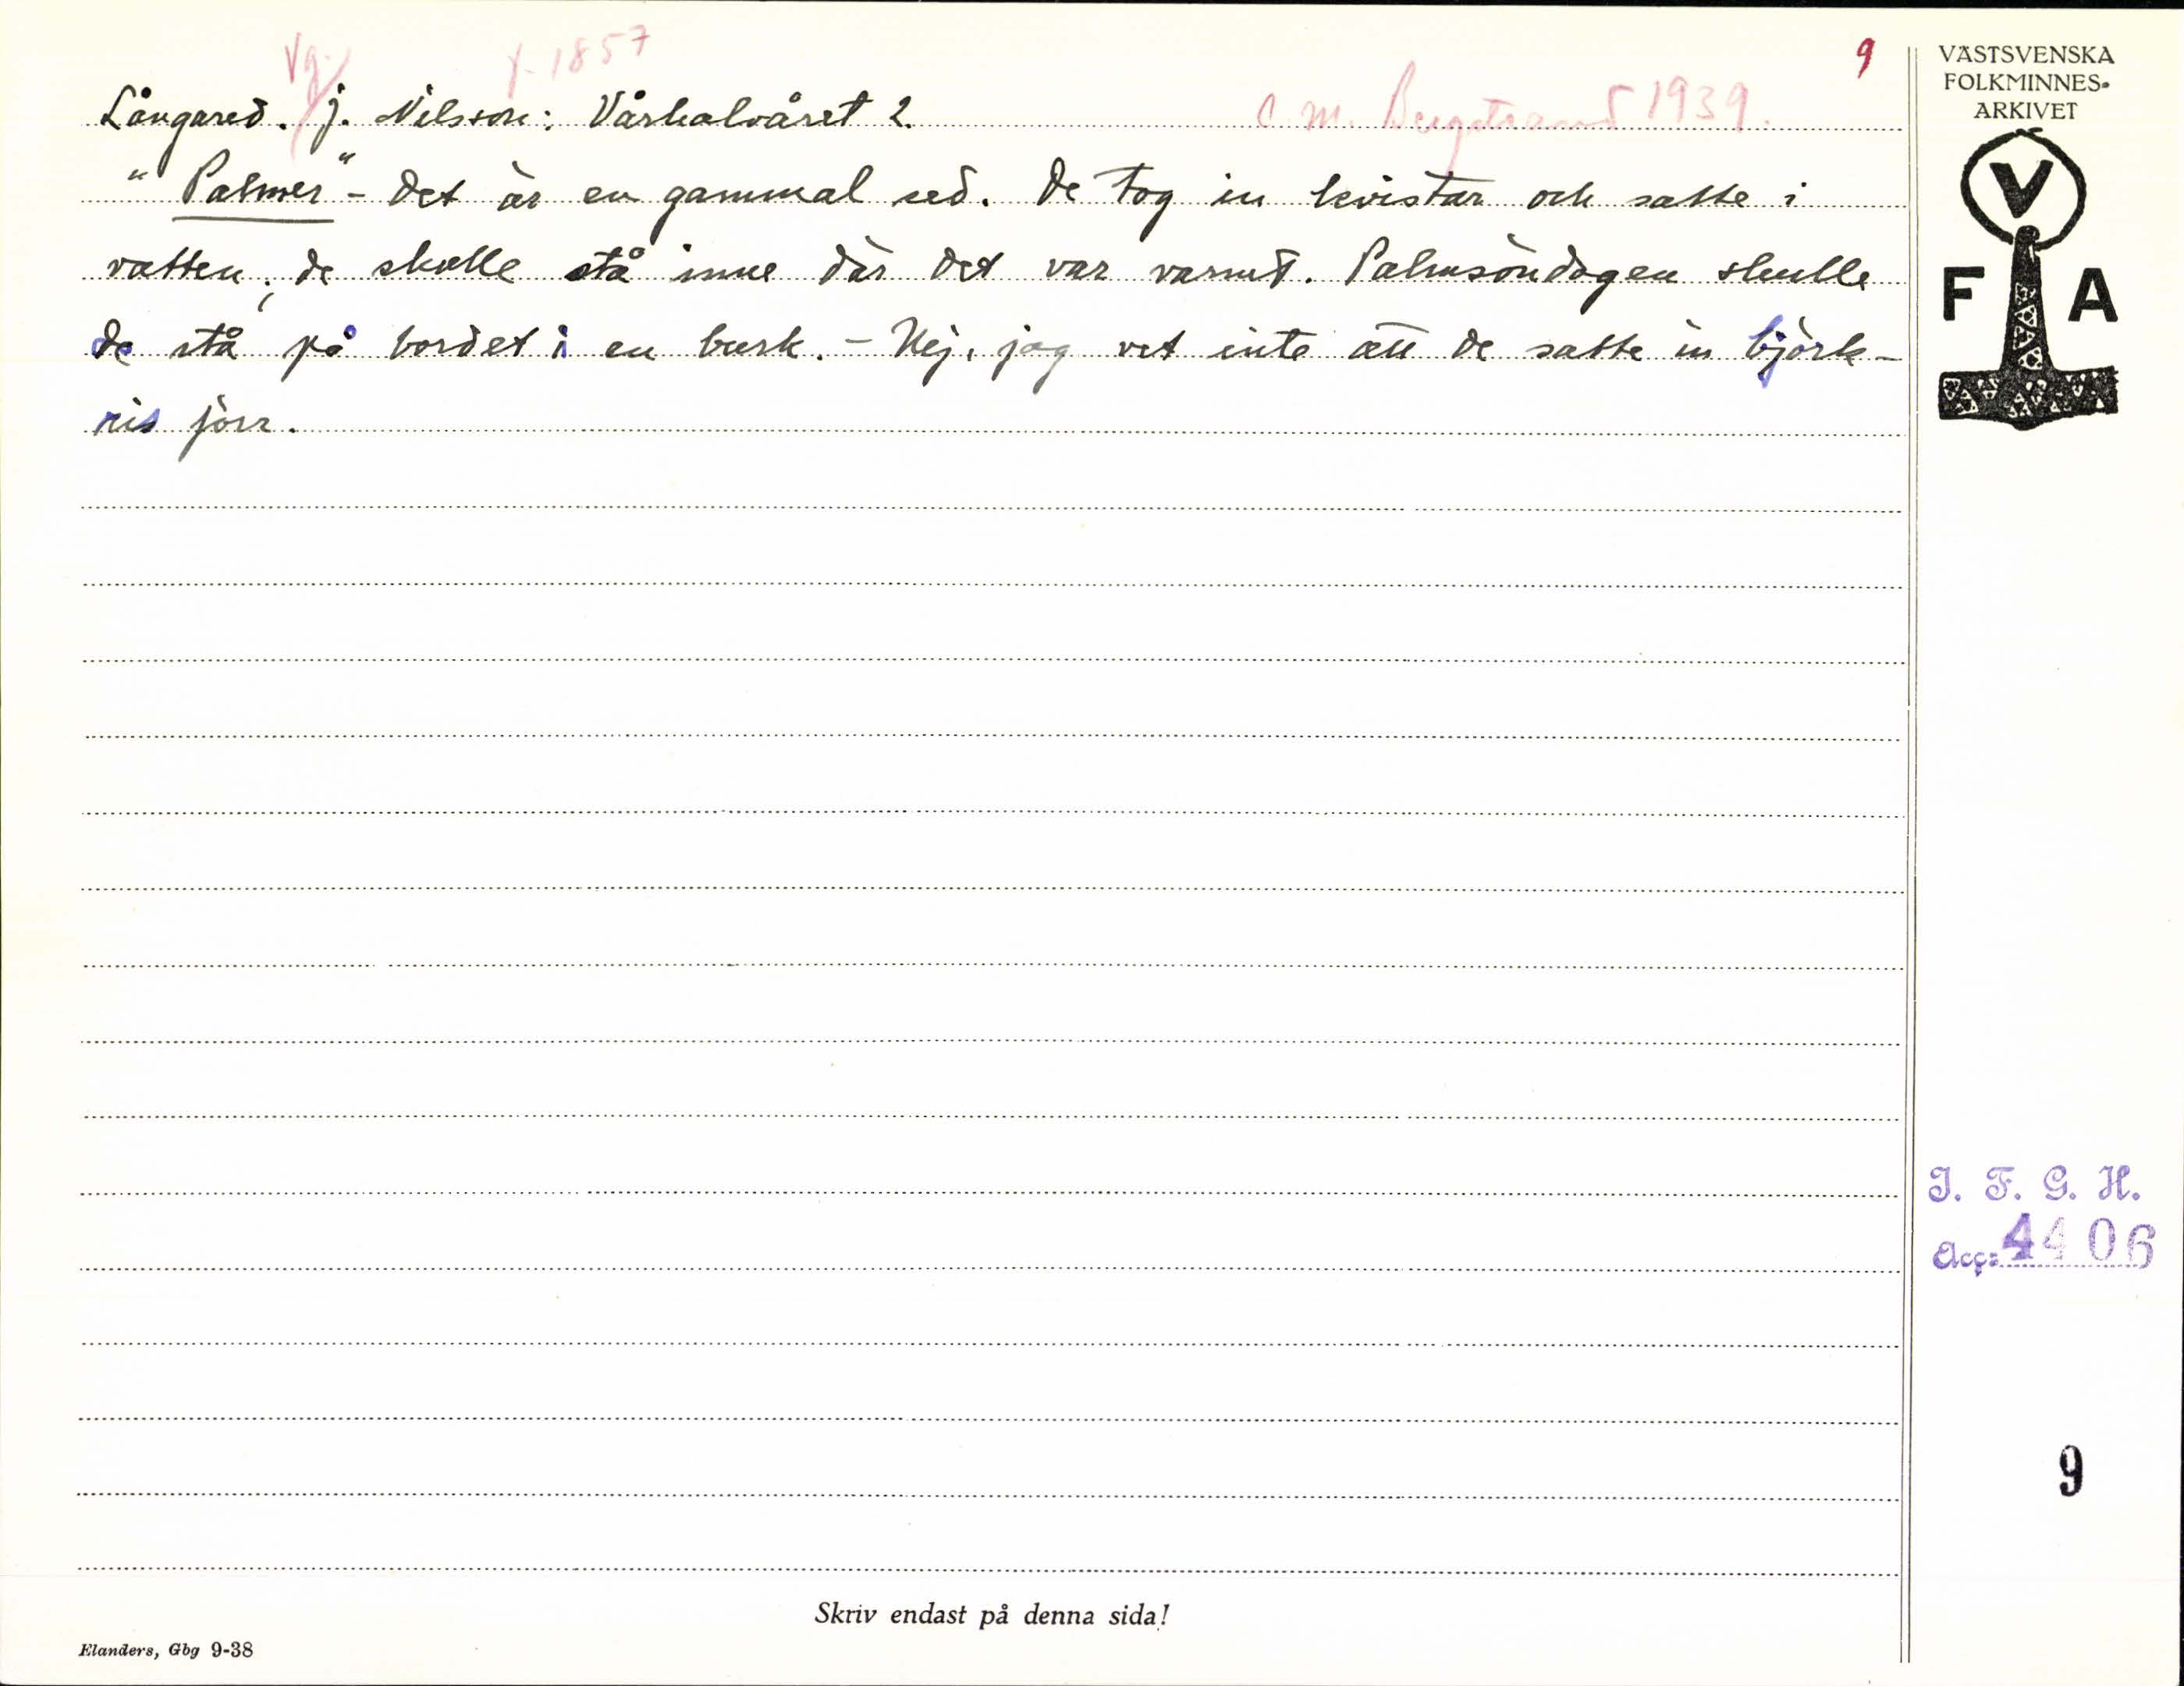 Vg. f. 1857
9
Långared. J. Nilsson: Vårhalvåret 2. C. M. Bergstrand 1939.
"Palmer" - Det är en gammal sed. De tog in kvistar och satte i
vatten; de skulle stå inne där det var varmt. Palmsöndagen skulle
de stå på bordet i en burk. - Nej, jag vet inte att de satte in björk-
ris förr.
VÄSTSVENSKA
FOLKMINNES-
ARKIVET
V
F A
I. F. G. H.
Acc: 4406
9
Skriv endast på denna sida!
Elanders, Gbg 9-38